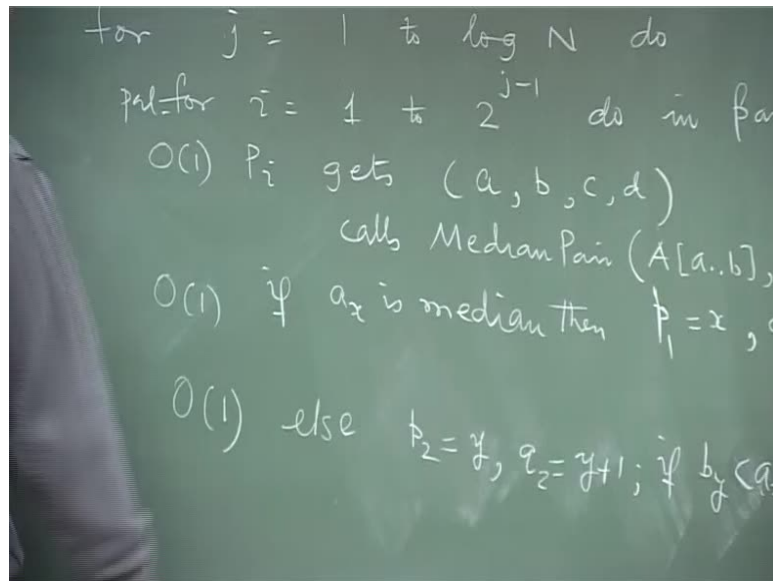 for j = 1 to log N do
par.for i = 1 to 2^{j-1} do in pa
O(1) P_i gets (a, b, c, d)
calls MedianPair (A[a..b],
O(1) if a_x is median then p_1 = x,
O(1) else p_2 = y, q_2 = y+1; if b_y < a